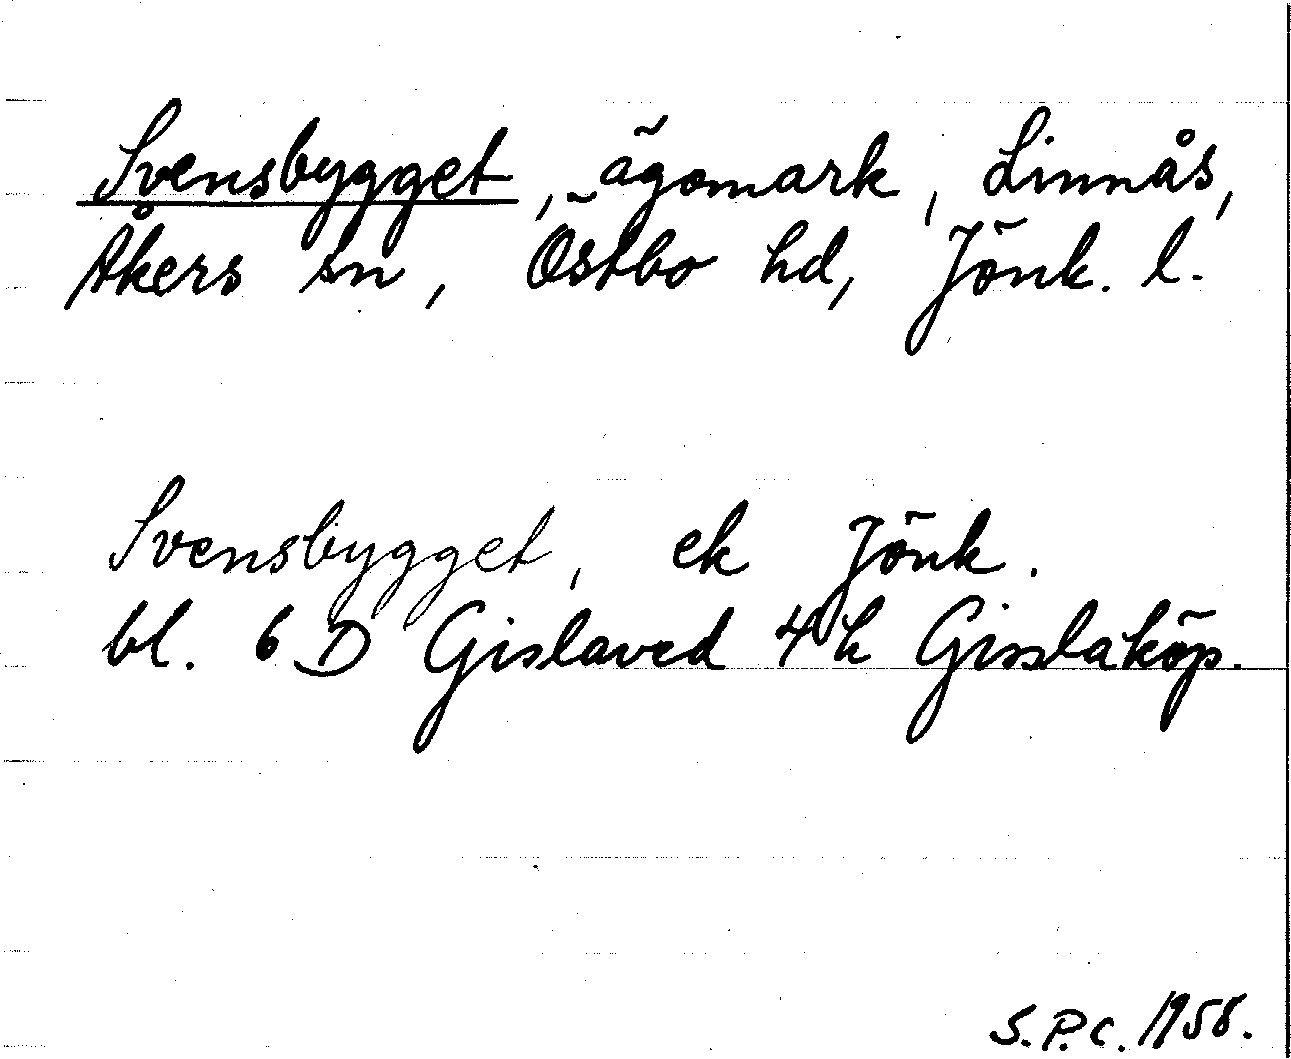 Svensbygget, ägomark, Linnås,
Åkers sn, Östbo hd, Jönk. l.
Svensbygget, ek Jönk.
bl. 6 D Gislaved 4 h Gisslaköp.
S.P.C. 1958.